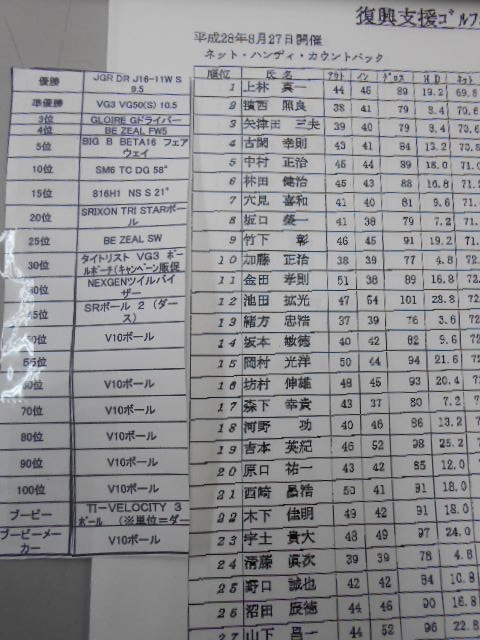 復興支援ゴルフ
平成28年8月27日開催
ネット・ハンディ・カウントバック
優勝 JGR DR J16-11W S 9.5
準優勝 VG3 VG50(S) 10.5
3位 GLOIRE Gドライバー
4位 BE ZEAL FW5
5位 BIG B BETA16 フェアウェイ
10位 SM6 TC DG 58°
15位 816H1 NS S 21°
20位 SRIXON TRI STARボール
25位 BE ZEAL SW
30位 タイトリスト VG3 ボールポーチ(キャンペーン販促
40位 NEXGENツイルバイザー
45位 SRボール 2 (ダース)
50位 V10ボール
55位
60位 V10ボール
70位 V10ボール
80位 V10ボール
90位 V10ボール
100位 V10ボール
ブービー TI-VELOCITY 3 ボール (※単位=ダー
ブービーメーカー V10ボール
順位 氏名 アウト イン グロス HD ネット
1 上林 真一 44 45 89 19.2 69.8
2 濱西 照良 38 41 79 8.4 70.6
3 矢津田 三夫 39 40 79 8.4 70.6
4 古閑 幸則 43 41 84 13.2 70.8
5 中村 正治 45 44 89 18.0 71.0
6 林田 健治 45 43 88 16.8 71.2
7 穴見 喜和 41 40 81 9.6 71.
8 坂口 榮一 41 38 79 7.2 71.
9 竹下 彰 46 45 91 19.2 71.
10 加藤 正治 38 39 77 4.8 72.
11 金田 孝則 51 38 89 16.8 72.
12 池田 拡光 47 54 101 28.8 72.
13 緒方 忠浩 37 39 76 3.6 72
14 坂本 敏徳 40 42 82 9.6 72
15 岡村 光洋 50 44 94 21.6 72
16 坊村 伸雄 48 45 93 20.4 7
17 森下 幸貴 43 37 80 7.2 7
18 河野 功 40 46 86 13.2 7
19 吉本 英紀 46 52 98 25.2 7
20 原口 祐一 43 42 85 12.0
21 西崎 昌浩 50 41 91 18.0
22 木下 佳明 49 42 91 18.0
23 宇土 貴大 48 49 97 24.0
24 清藤 眞次 39 39 78 4.8
25 野口 誠也 42 42 84 10.8
26 沼田 辰徳 44 46 90 16.8
27 山下 昌一 44 52 96 22.8